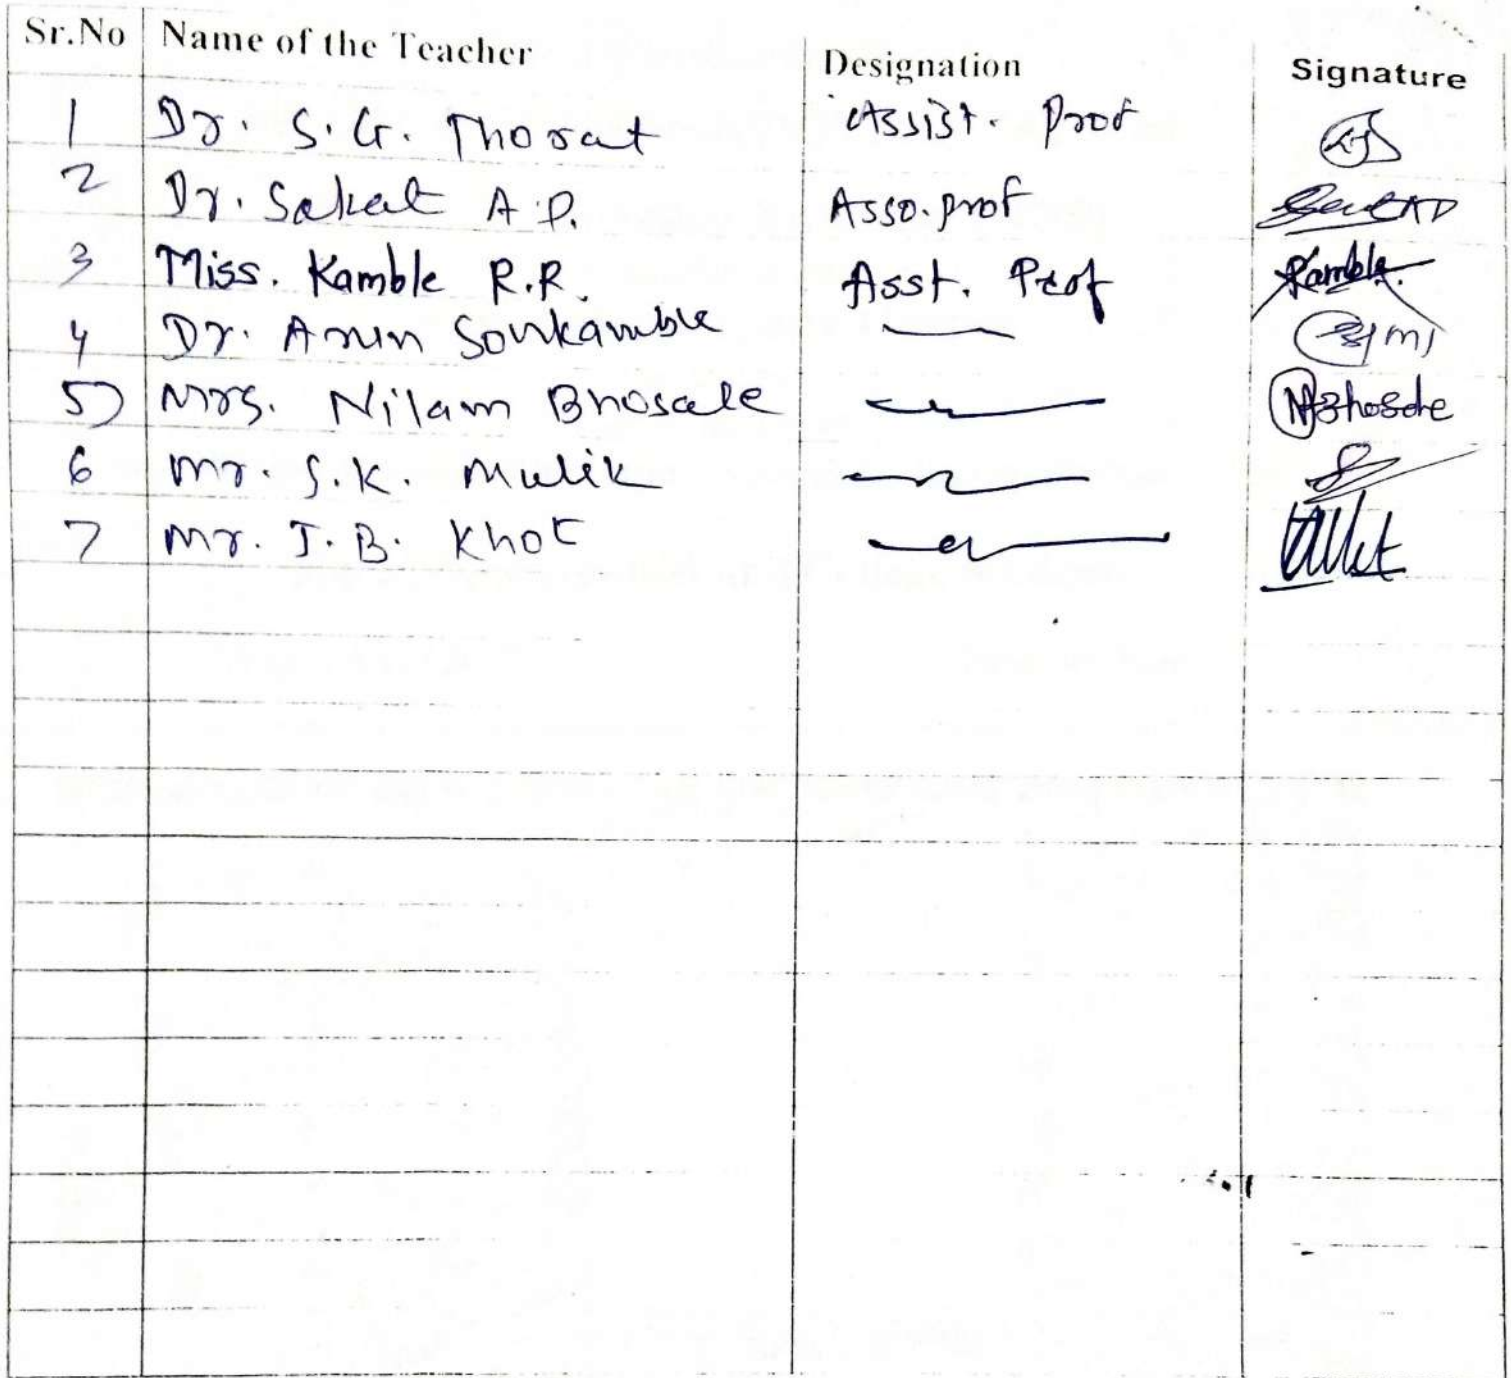 Sr.No Name of the Teacher Designation Signature
1 Dr. S. G. Thorat Assist. Prof
2 Dr. Sakat A.P. Asso. prof
3 Miss. Kamble R.R. Asst. Prof Kamble.
4 Dr. Arun Sonkamble
5) Mrs. Nilam Bhosale NBhosale
6 Mr. S.K. Mulik
7 Mr. J.B. Khot